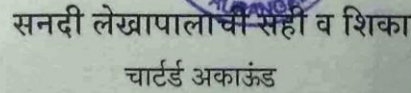 सनदी लेखापालाची सही व शिक्का
चार्टर्ड अकाऊंड